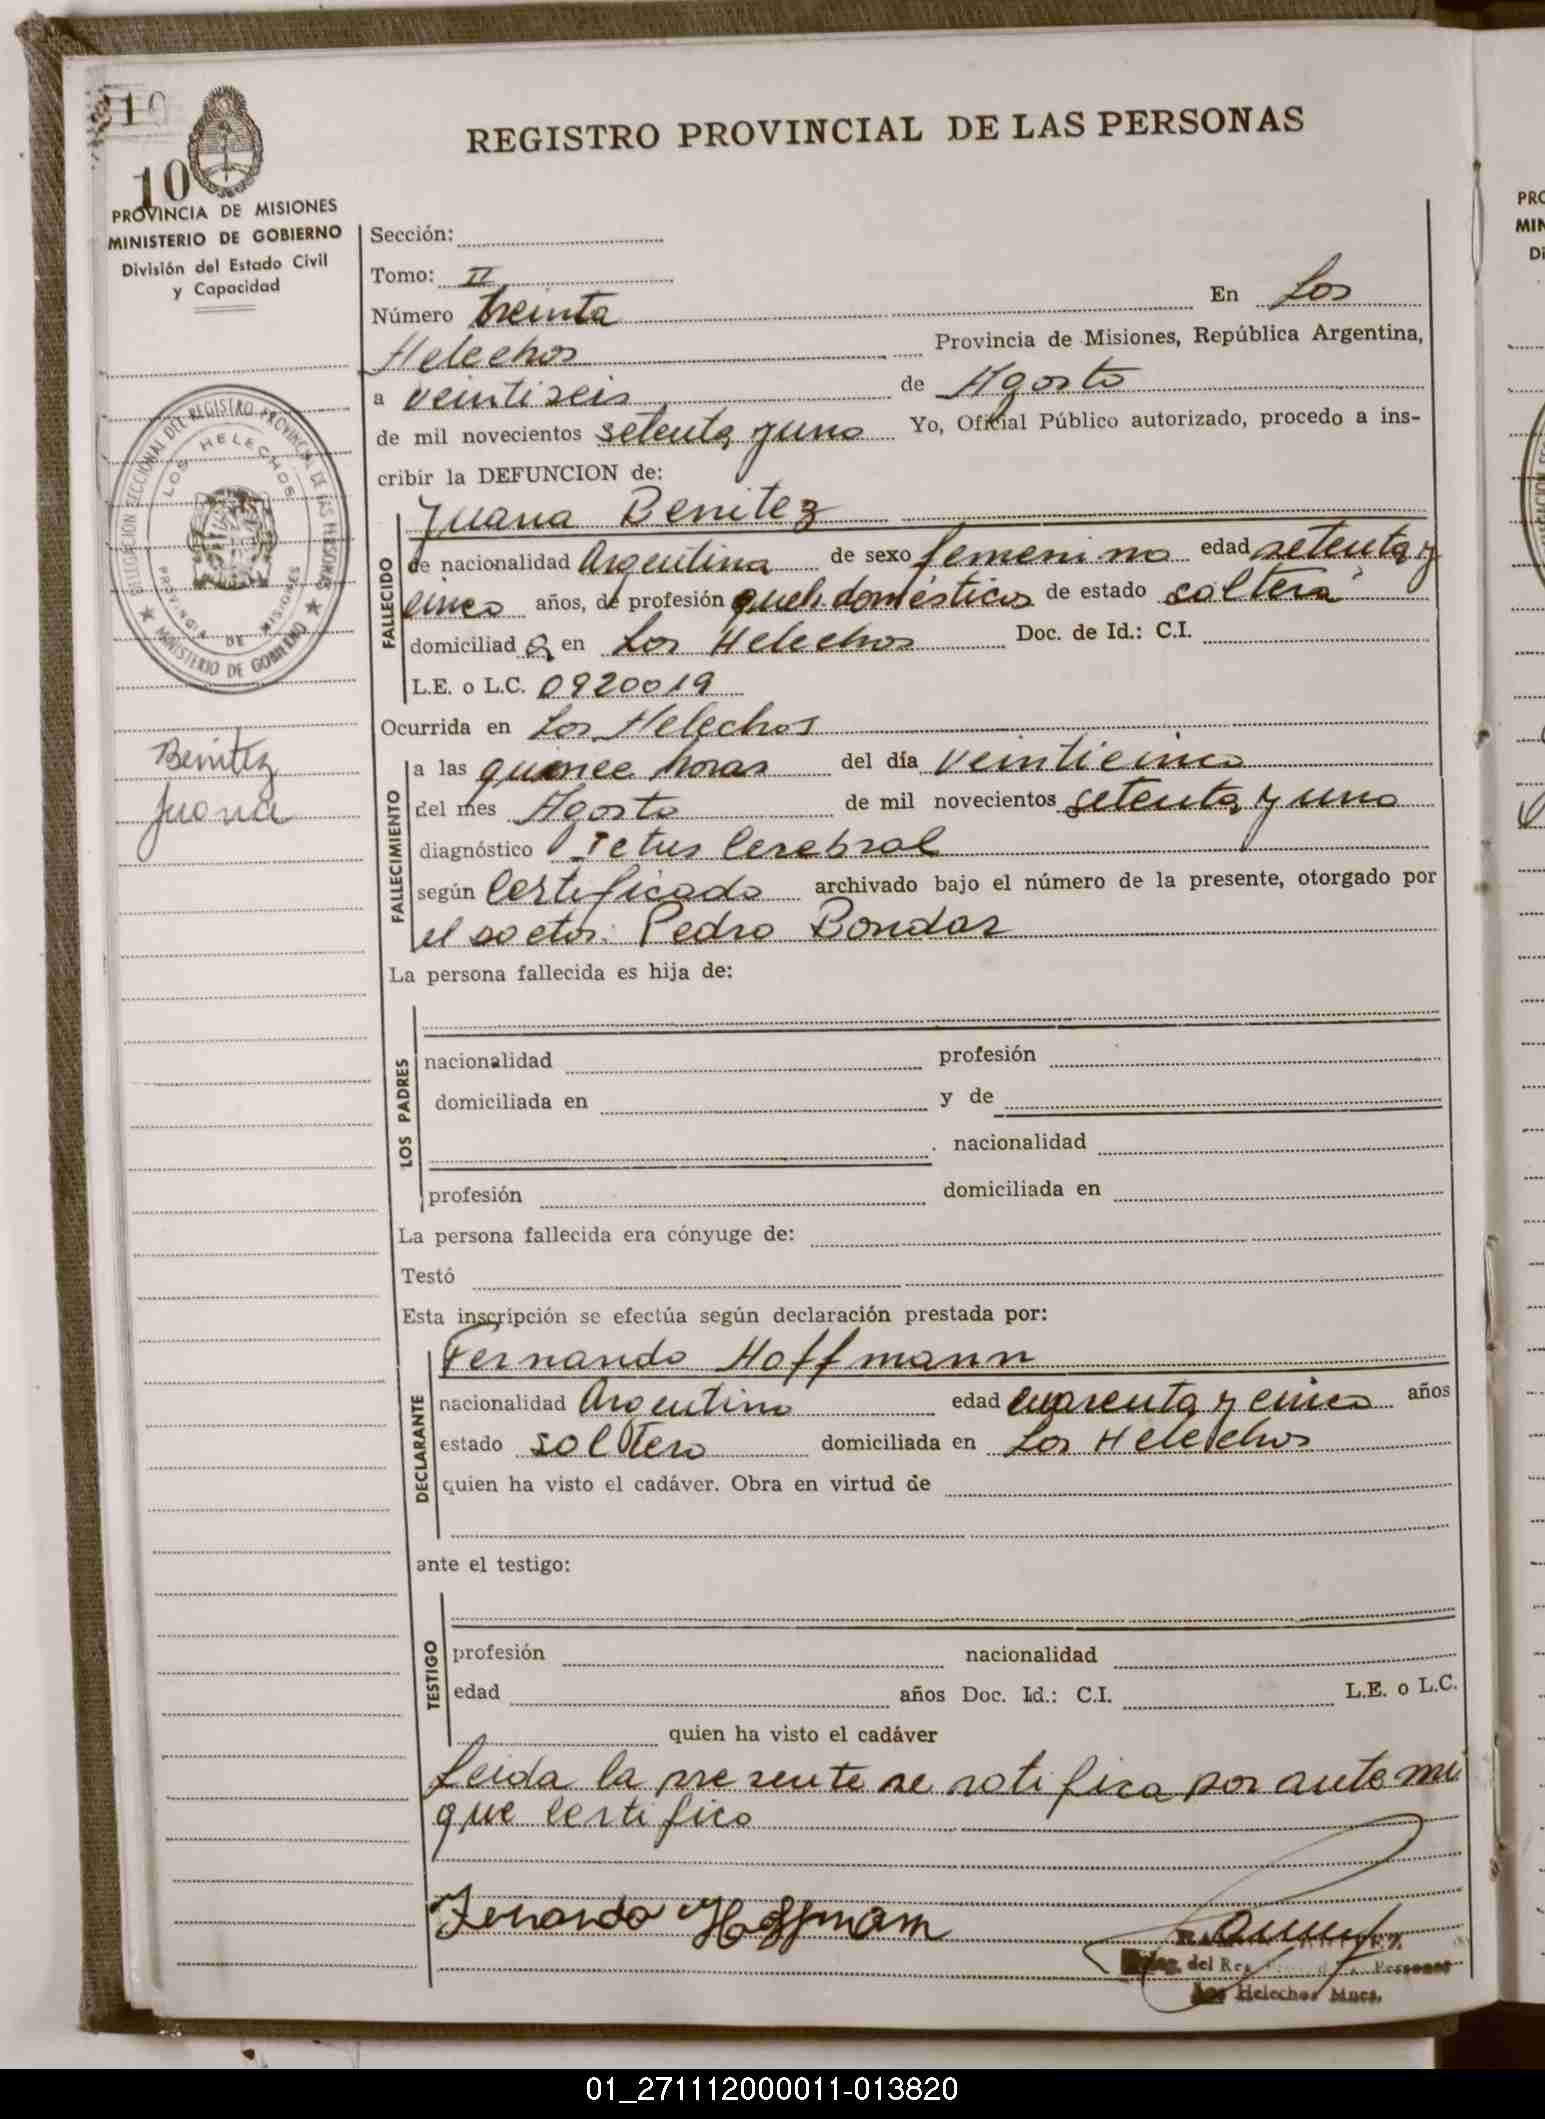 10
10
REGISTRO PROVINCIAL DE LAS PERSONAS
PROVINCIA DE MISIONES
MINISTERIO DE GOBIERNO
División del Estado Civil
y Capacidad
Sección:
Tomo: II
Número treinta En Los
Helechos Provincia de Misiones, República Argentina,
a veintiseis de Agosto
de mil novecientos setenta y uno Yo, Oficial Público autorizado, procedo a ins-
cribir la DEFUNCION de:
DELEGACION SECCIONAL DEL REGISTRO PROVINCIAL DE LAS PERSONAS
LOS HELECHOS
PROVINCIA DE MISIONES
★ MINISTERIO DE GOBIERNO ★
Benitez
Juana
FALLECIDO
Juana Benitez
de nacionalidad Argentina de sexo femenino edad setenta y
cinco años, de profesión queh. domésticos de estado soltera
domiciliad a en Los Helechos Doc. de Id.: C.I.
L.E. o L.C. 0920019
Ocurrida en Los Helechos
FALLECIMIENTO
a las quince horas del día veinticinco
del mes Agosto de mil novecientos setenta y uno
diagnóstico Ictus Cerebral
según Certificado archivado bajo el número de la presente, otorgado por
el doctor: Pedro Bondar
La persona fallecida es hija de:
LOS PADRES
nacionalidad profesión
domiciliada en y de
nacionalidad
profesión domiciliada en
La persona fallecida era cónyuge de:
Testó
Esta inscripción se efectúa según declaración prestada por:
DECLARANTE
Fernando Hoffmann
nacionalidad Argentino edad cuarenta y cinco años
estado soltero domiciliada en Los Helechos
quien ha visto el cadáver. Obra en virtud de
ante el testigo:
TESTIGO
profesión nacionalidad
edad años Doc. Id.: C.I. L.E. o L.C.
quien ha visto el cadáver
Leida la presente se ratifica por ante mi
que certifico
Fernando Hoffmann
del Reg. Personas
Los Helechos Mnes.
PRO
MIN
Di
01_271112000011-013820